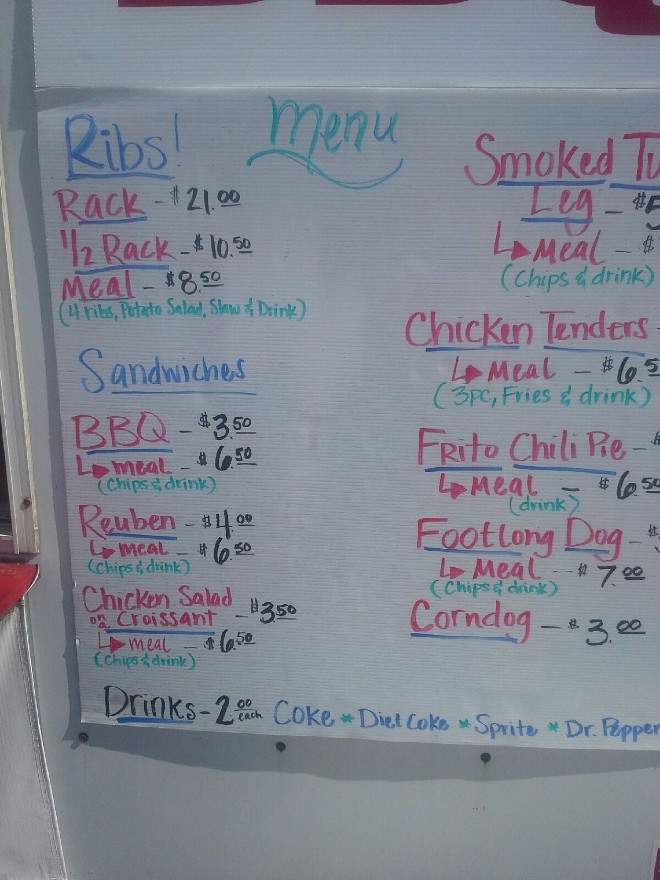 Menu
Ribs!
Rack - $21.00
1/2 Rack - $10.50
Meal - $8.50
(4 ribs, Potato Salad, Slaw & Drink)
Sandwiches
BBQ - $3.50
meal - $6.50
(Chips & drink)
Reuben - $4.00
meal - $6.50
(Chips & drink)
Chicken Salad
on a Croissant - $3.50
meal - $6.50
(Chips & drink)
Smoked Tu
Leg - $5
Meal - $
(Chips & drink)
Chicken Tenders
Meal - $6.5
(3PC, Fries & drink)
Frito Chili Pie - $
Meal - $6.50
(drink)
Footlong Dog - $
Meal - $7.00
(Chips & drink)
Corndog - $3.00
Drinks - 2.00 each Coke * Diet Coke * Sprite * Dr. Pepper